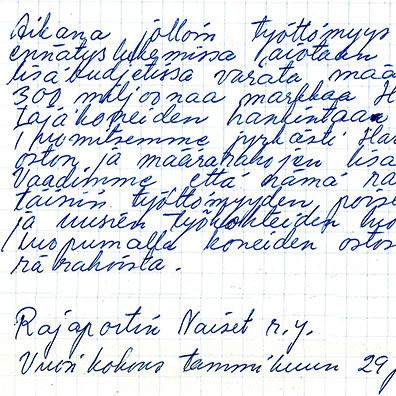 Aikana jolloin työttömyys
ennätyslukemissa aiotaan
lisäbudjetissa varata mää
300 miljoonaa markkaa H
tajäkoneiden hankintaan
tuomitsemme jyrkästi Ha
oston ja määrärahojen lisä
Vaadimme että nämä ra
taisiin työttömyyden poise
ja uusien työkohteiden luo
luopumalla koneiden ostos
rärahoista.
Rajaportin Naiset r.y.
Vuosikokous tammikuun 29 p